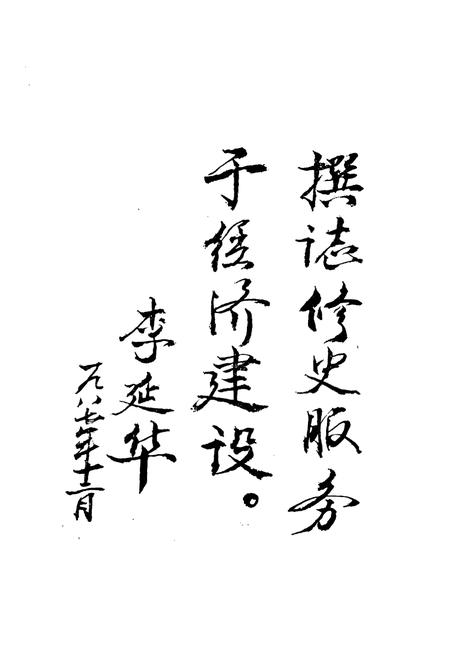 撰誌修史服务
于经济建设。
李延华
一九八七年十二月